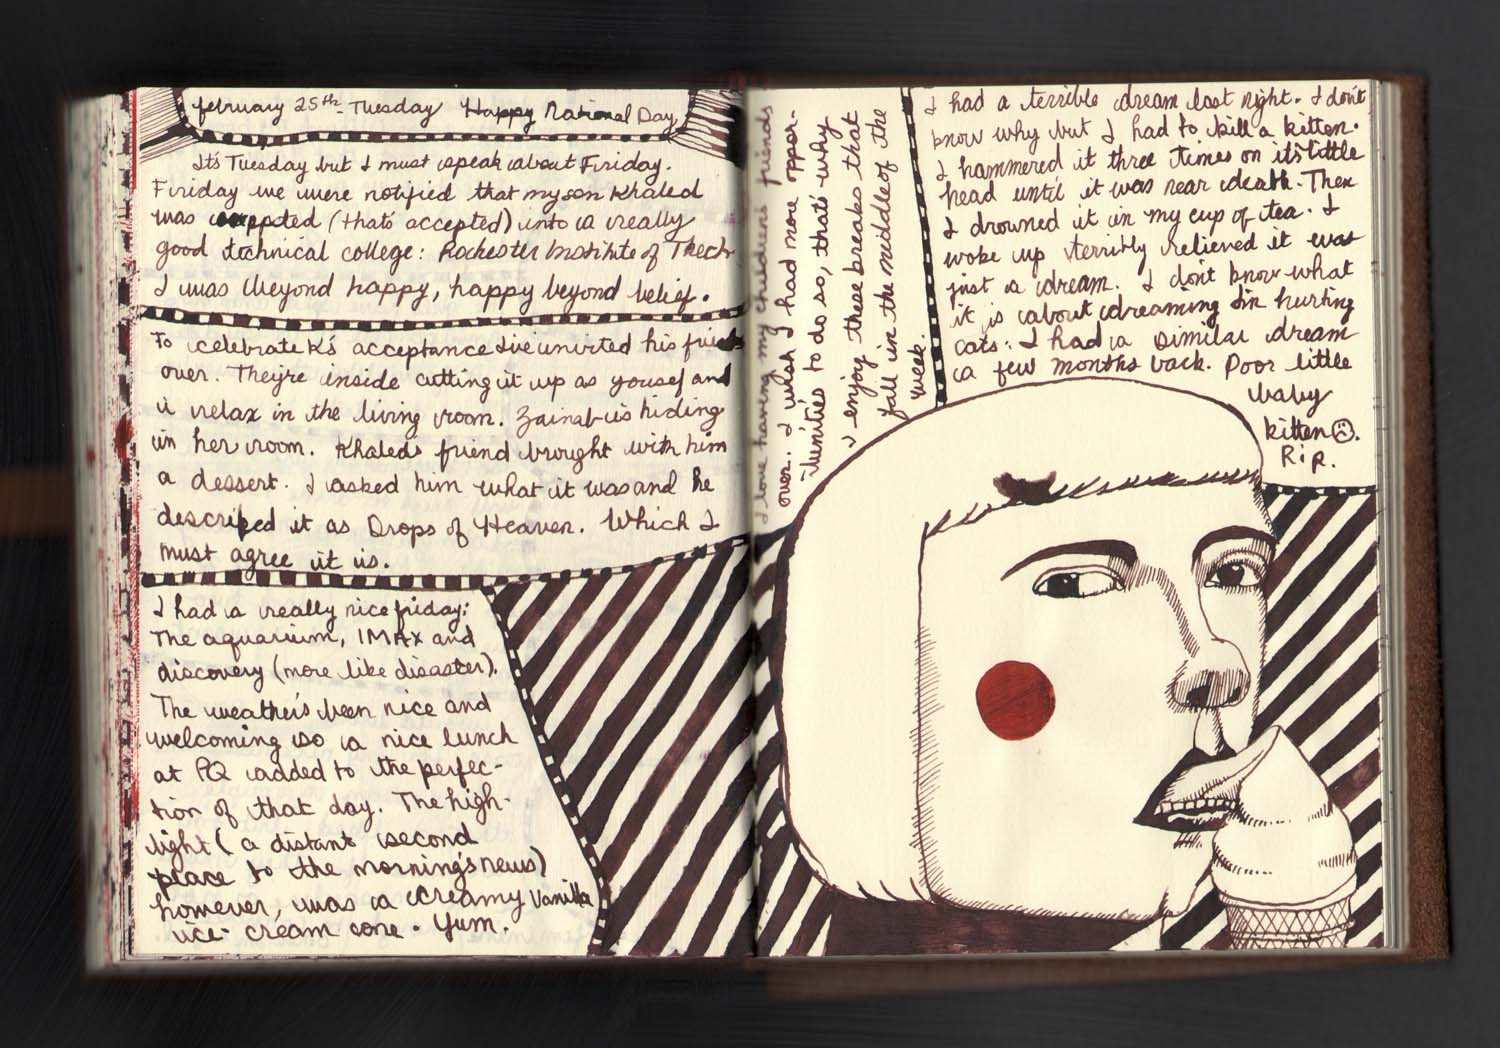 february 25th - Tuesday Happy National Day
It's Tuesday but I must speak about Friday.
Firiday we were notified that my son Khaled
was (that's accepted) into a really
good technical college: Rochester Institute of Thech
I was beyond happy, happy beyond belief.
To celebrate K's acceptance I've invited his friends
over. They're inside cutting it up as yousef and
i relax in the living room. Zainab is hiding
in her room. Khaled's friend brought with him
a dessert. I asked him what it was and he
described it as Drops of Heaven. Which I
must agree it is.
I had a really nice friday;
The aquarium, IMAX and
discovery (more like disaster).
The weather's been nice and
welcoming so a nice lunch
at PQ added to the perfec-
tion of that day. The high-
light (a distant second
place to the morning's news)
however, was a creamy Vanilla
ice-cream cone. Yum.
I love having my children's friends
over. I wish I had more oppor-
-tunities to do so, that's why
I enjoy these breaks that
fall in the middle of the
week.
I had a terrible dream last night. I don't
know why but I had to kill a kitten.
I hammered it three times on it's little
head until it was near death. Then
I drowned it in my cup of tea. I
woke up terribly relieved it was
just a dream. I don't know what
it is about dreaming I'm hurting
cats. I had a similar dream
a few months back. Poor little
baby
kitten ☹.
R.i.p.